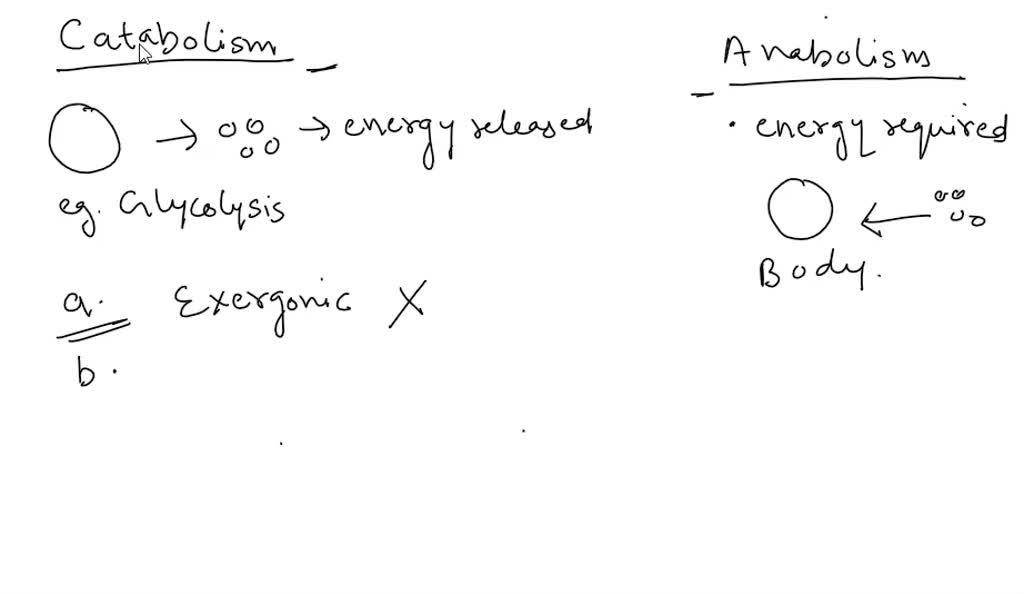 Catabolism
→ → energy released
eg. Glycolysis
a. Exergonic X
b.
Anabolism
• energy required
←
Body.